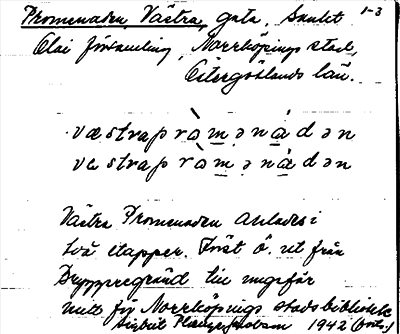 Promenaden, Västra, gata, Sankt 1-3
Olai församling, Norrköpings stad,
Östergötlands län.
væstrap ròmənádən
vɛstrap ròmənádən
Västra Promenaden anlades i
två etapper. Först ö. ut från
Bryggaregränd till ungefär
mitt för Norrköpings stadsbibliotek
1942 (forts.)